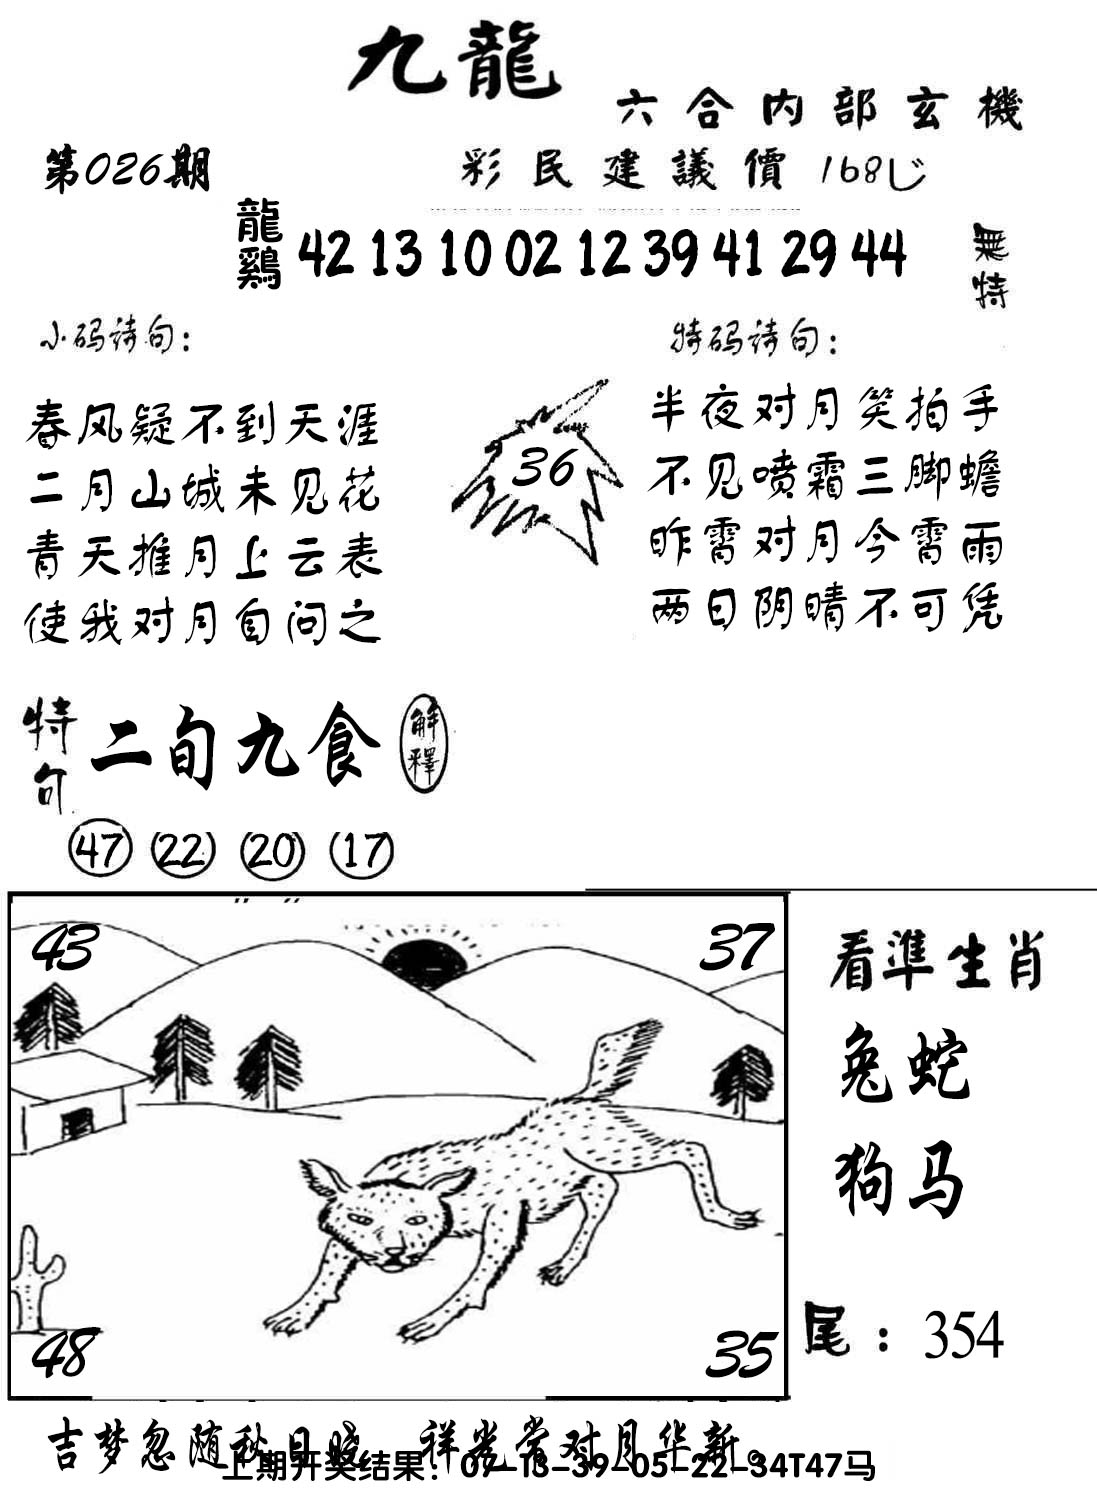 九龍
六合内部玄機
第026期
彩民建議價 168
龍鷄 42 13 10 02 12 39 41 29 44 無特
小码诗句：
春风疑不到天涯
二月山城未见花
青天推月上云表
使我对月自问之
36
特码诗句：
半夜对月笑拍手
不见喷霜三脚蟾
昨霄对月今霄雨
两日阴晴不可凭
特句 二旬九食 解釋
47 22 20 17
43
37
48
35
看準生肖
兔蛇
狗马
尾：354
吉梦忽随秋月皎 祥光常对月华新。
上期开奖结果：07-13-39-05-22-34T47马